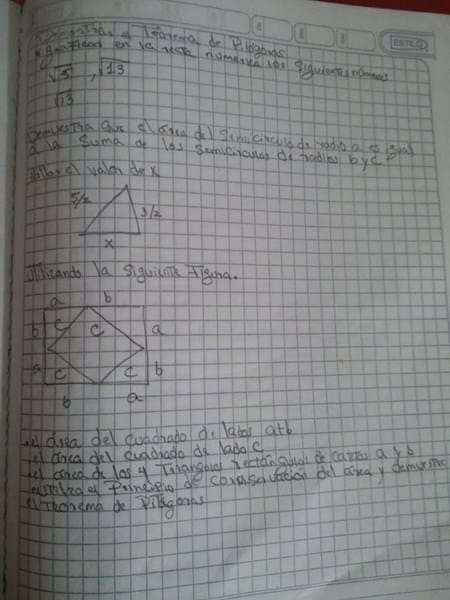 ESTILO
Demostrar el Teorema de Pitágoras
Graficar en la recta numerica los siguientes números
√5 , √13
√13
Demuestra que el área del semicirculo de radio a es igual
a la suma de los semicirculos de radios b y c
Hallar el valor de x
5/2
3/2
x
Utilizando la siguiente Figura.
a b
b c c a
a c c b
b a
el área del cuadrado de lados a+b
el área del cuadrado de lado c
el área de los 4 Triangulos rectángulos de catetos a y b
utiliza el Principio de conservación del área y demuestre
el Teorema de Pitágoras